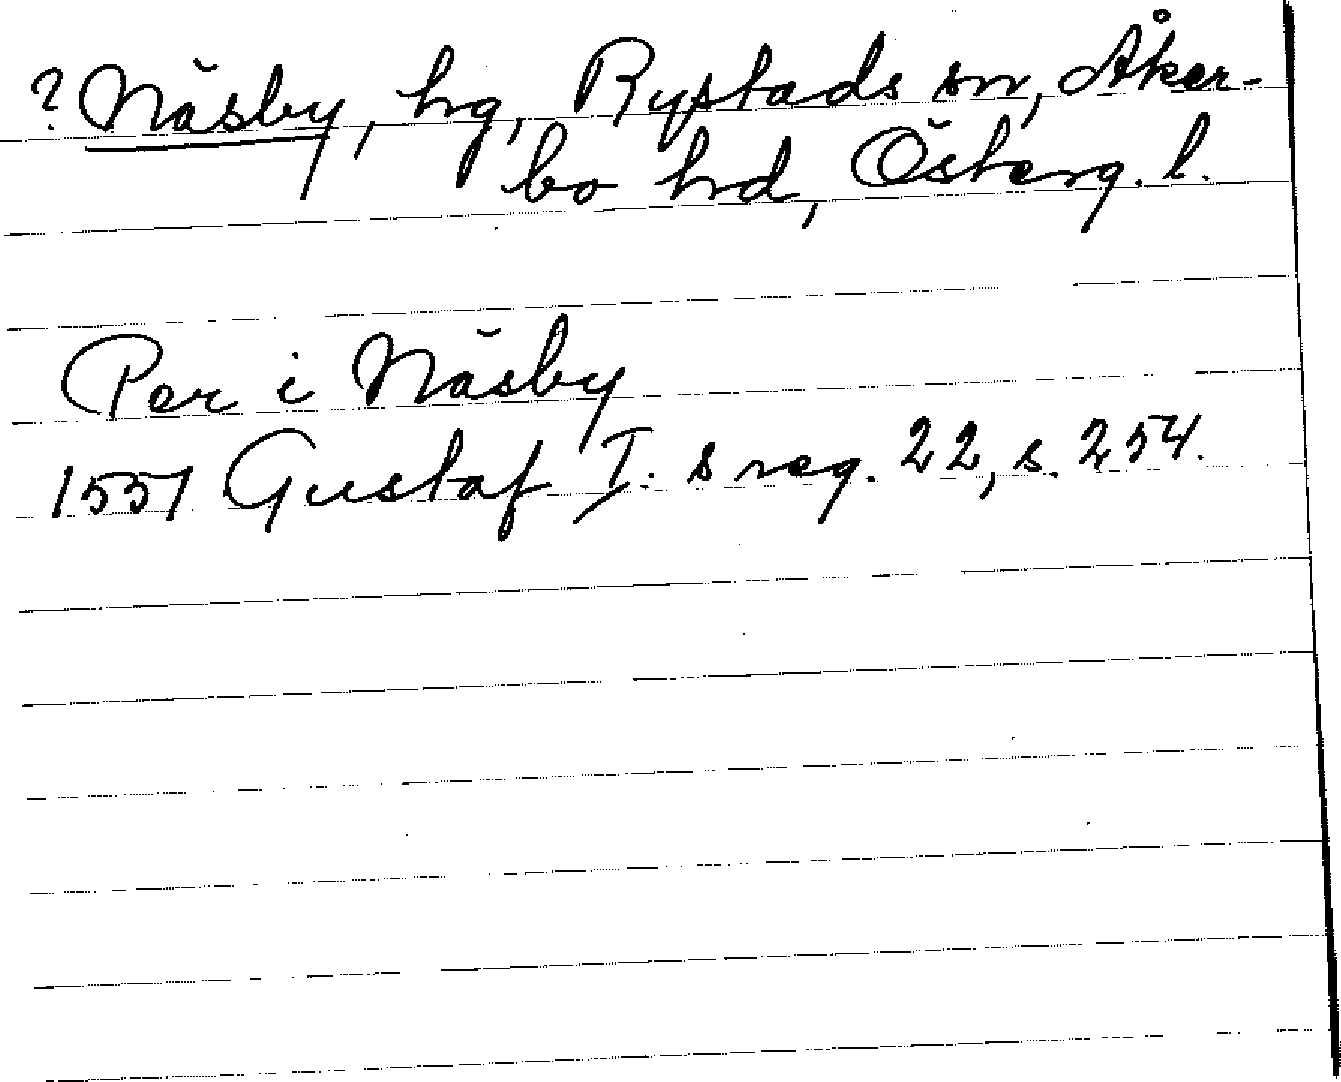 ? Näsby, hg, Rystads sn, Åker-
bo hd, Österg. l.
Per i Näsby
1551 Gustaf I. s reg. 22, s. 254.